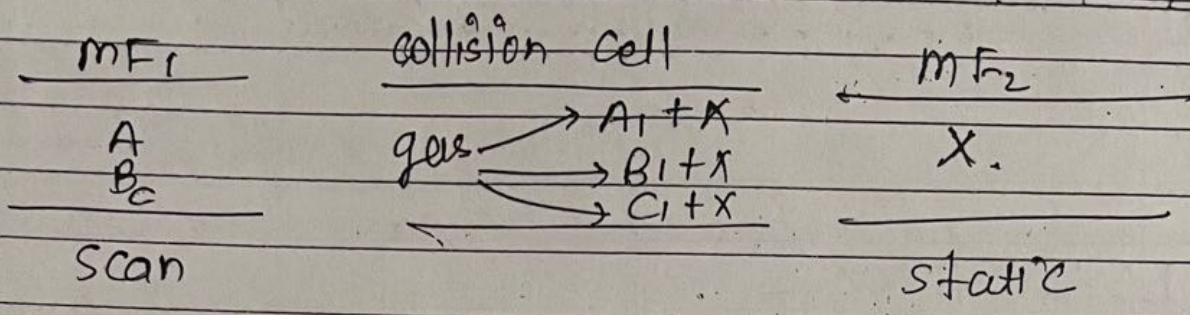 MF1 collision cell MF2
A gas → A1 + X X.
B → B1 + X
C → C1 + X
scan static